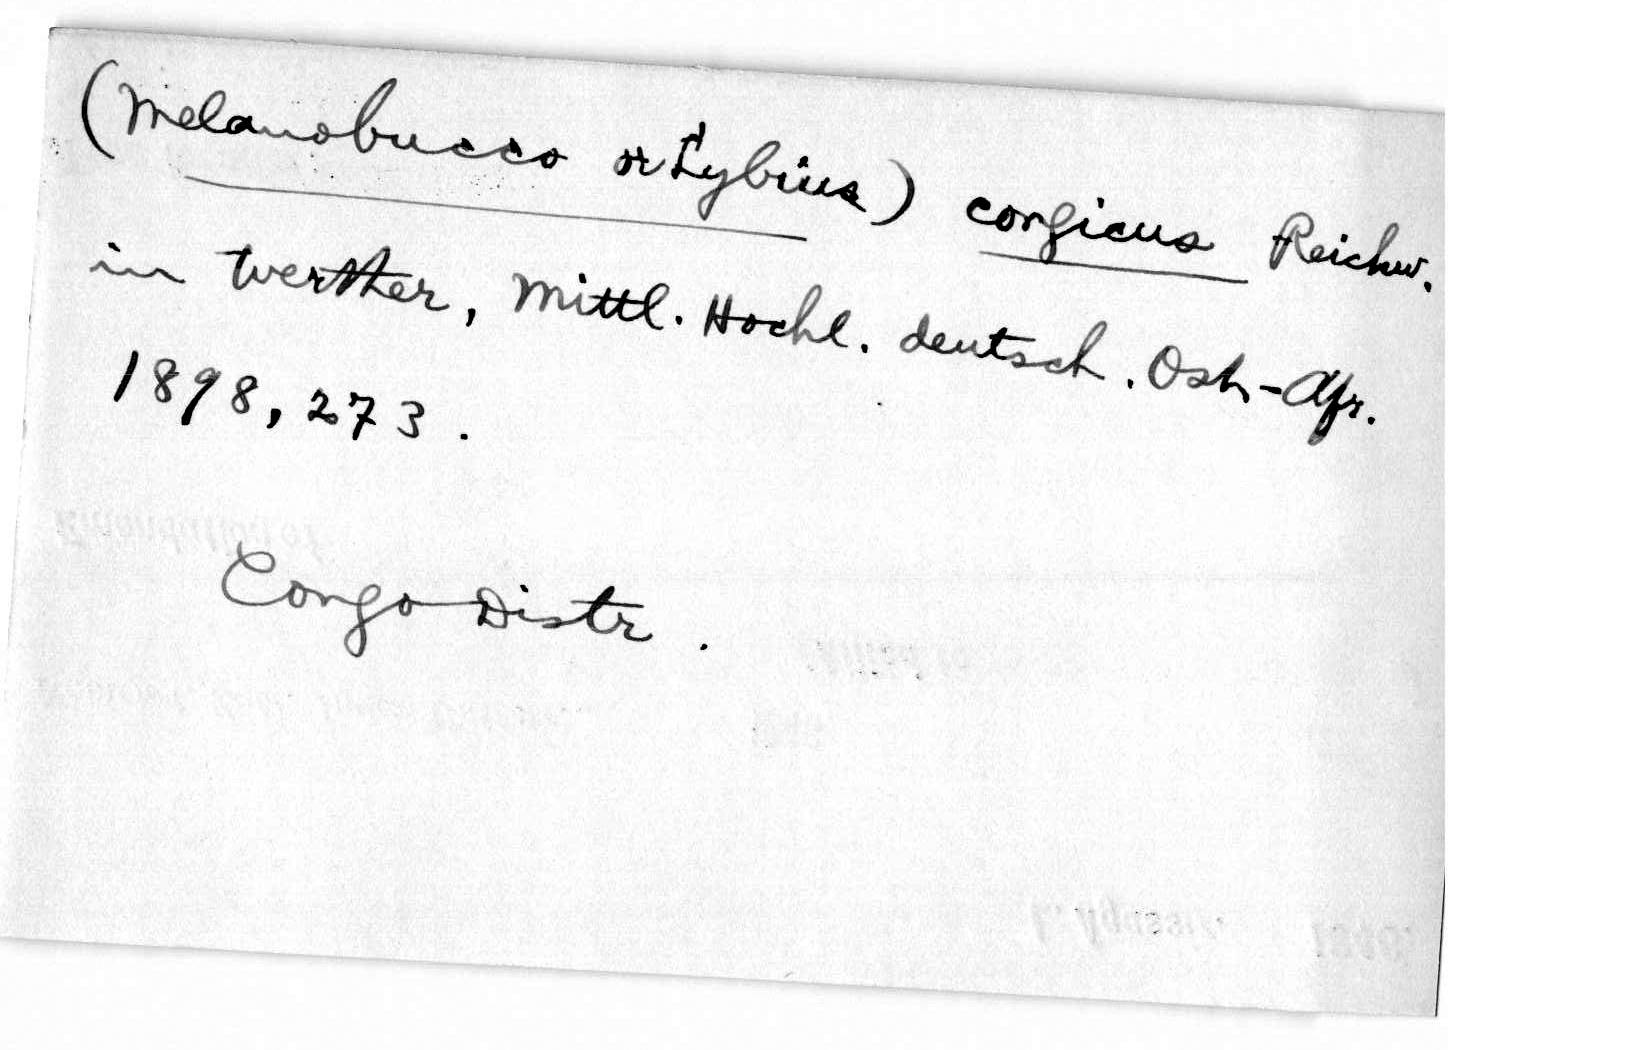 (Melanobucco or Lybius) congicus Reichw.
in Werther, Mittl. Hochl. deutsch. Ost-Afr.
1898, 273.
Congo Distr.